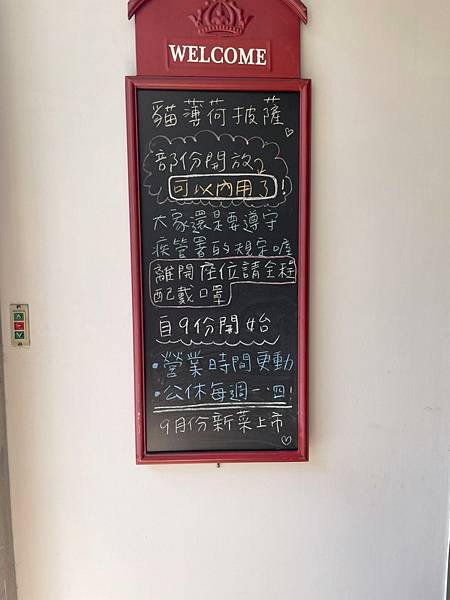 WELCOME
貓薄荷披薩
部份開放
可以內用了!
大家還是要遵守
疾管署的規定喔
離開座位請全程
配戴口罩
自9份開始
·營業時間更動
·公休每週一.四!
9月份新菜上市